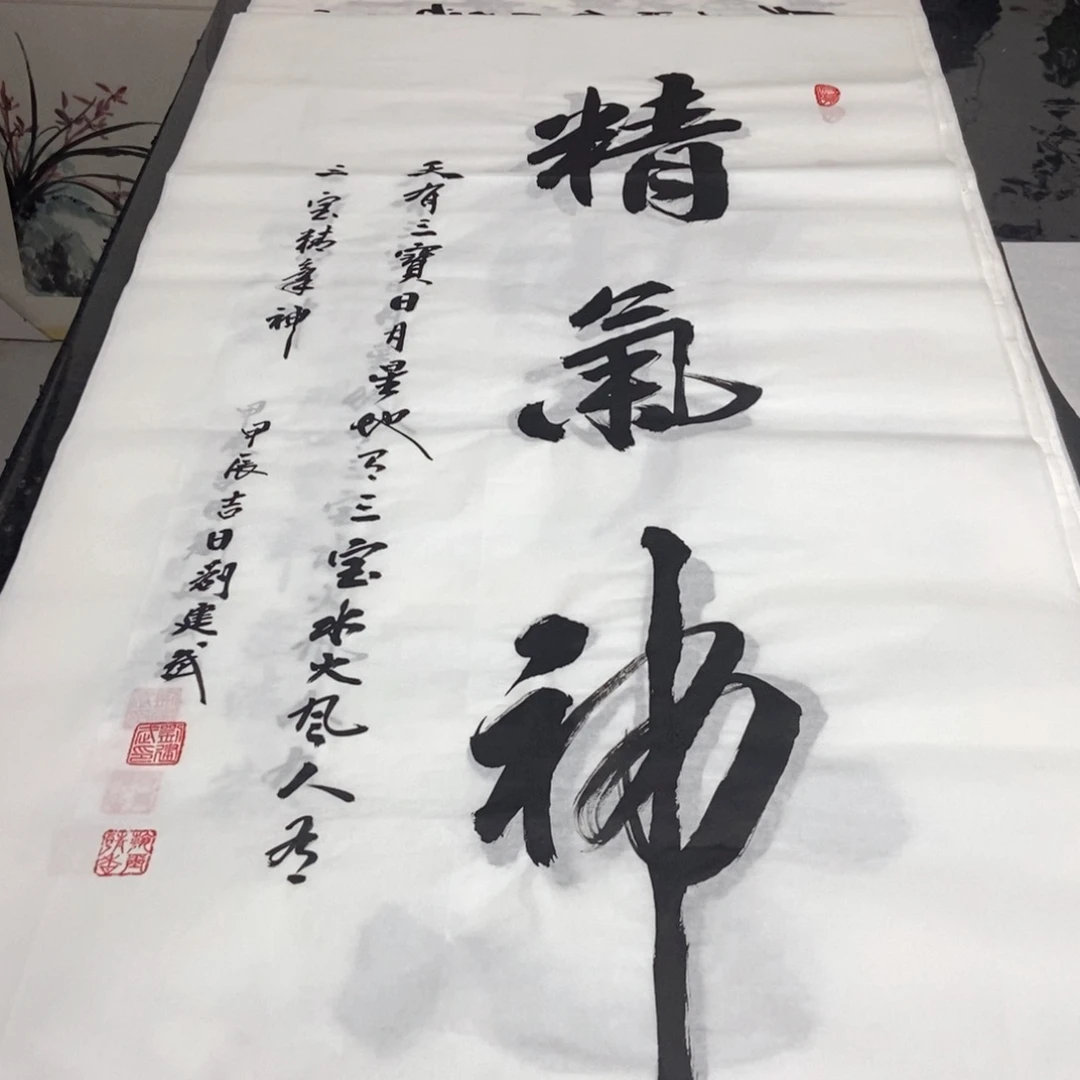 精氣神
天有三寶日月星地有三宝水火風人有
三宝精氣神
甲辰吉日劉建武
劉建武印